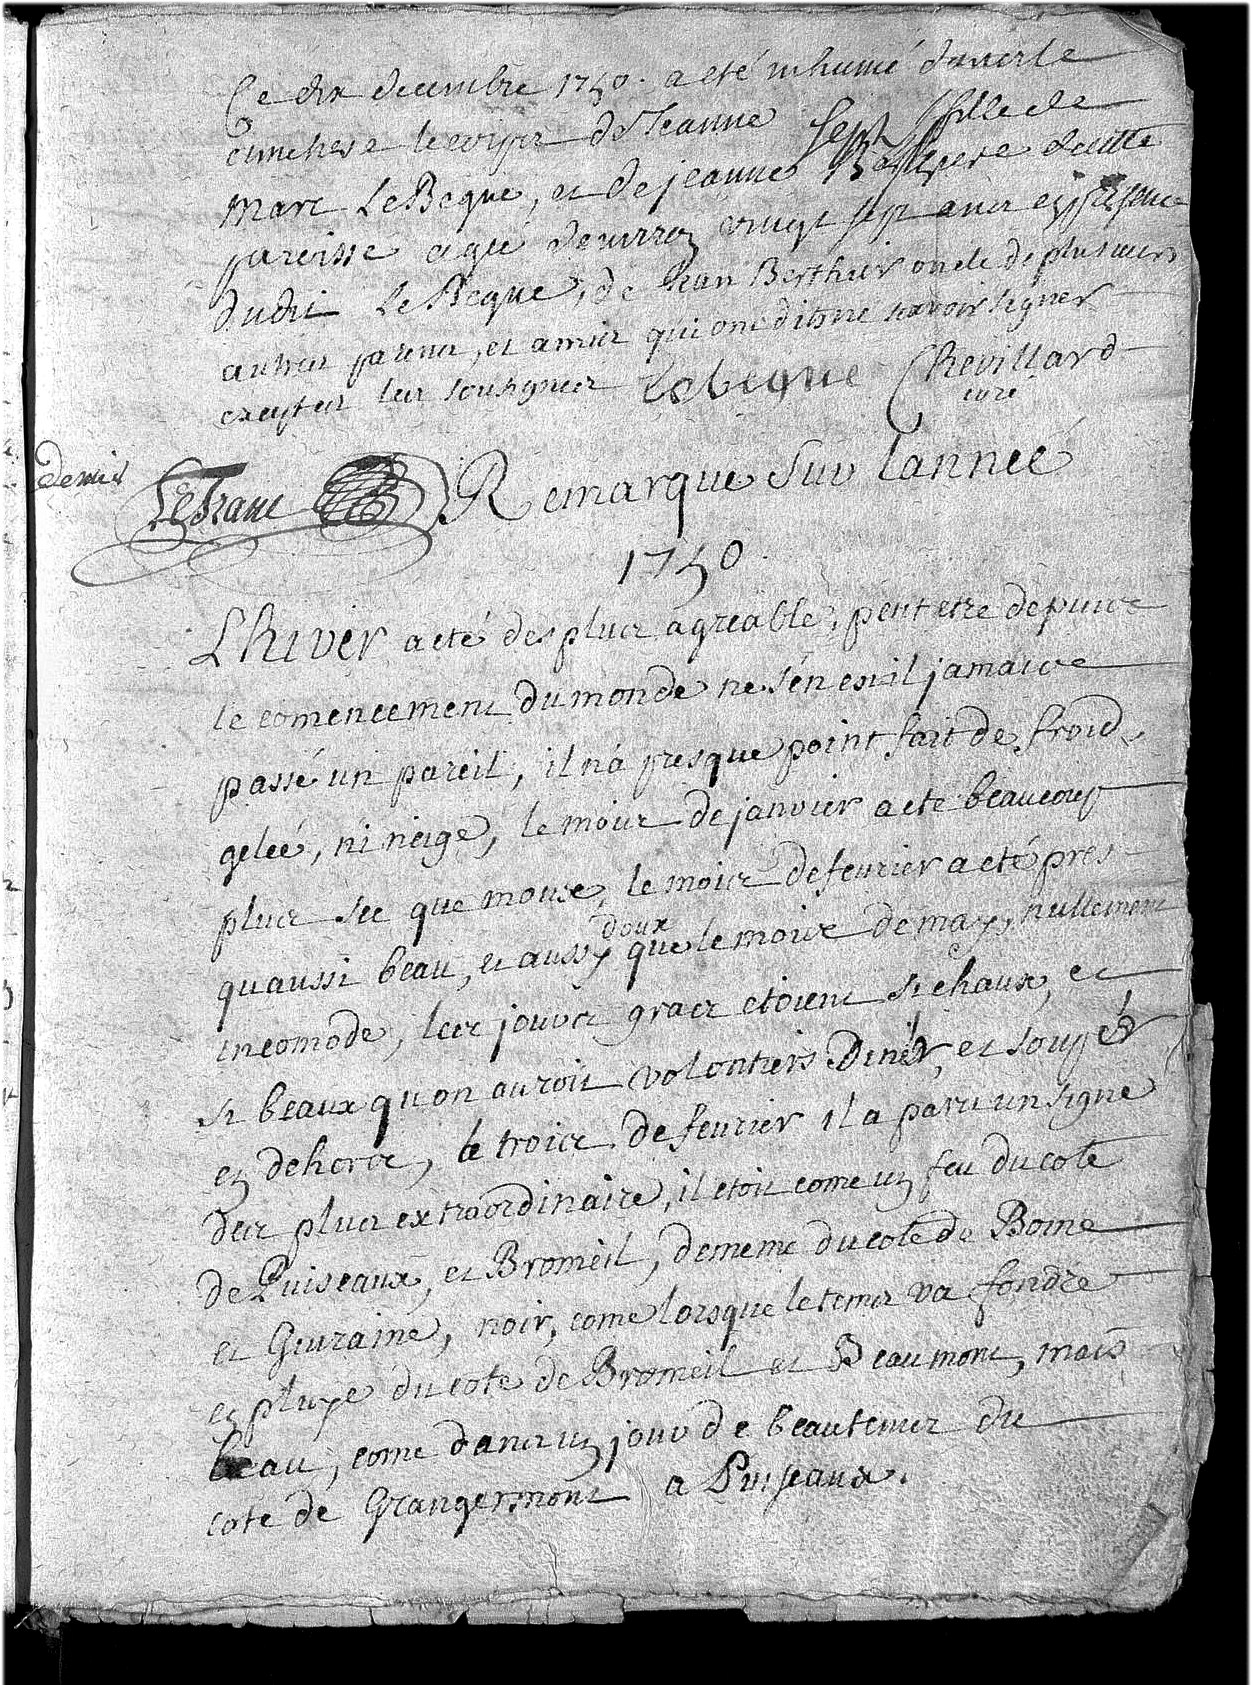 Ce dix decembre 1750. a eté inhumé dans le
cimetiere le corps de Jeanne fille de
Marc LeBegue, et de jeanne de cette
paroisse agé denviron vingt sept ans en presence
dudit LeBegue, de Jean Berthier oncle de plusieurs
autres parens, et amis qui ont dit ne scavoir signer
exceptez les sousignez Lebegue Chevillard
curé
LeFranc Remarque sur lanneé
1750.
Lhiver a eté des plus agreable, peut etre depuis
le comencement du monde ne sén est il jamais
passé un pareil, il ná presque point fait de froid,
geleé, ni neige, le mois de janvier a eté beaucoup
plus sec que mouse, le mois de feurier a eté pres
quaussi beau, et aussy doux que le mois de may, nullement
incomode, les jours gras etoient si chaux, et
si beaux quon auroit volontiers Diner, et soupér
en dehors, le trois de feurier il a paru un signe
des plus extraordinaire, il etoit come un feu du coté
de Puiseaux, et Bromeil, de meme du coté de Bome
et Givraine, noir, come lorsque le tems va fondre
en pluye du coté de Bromeil et Beaumont, mais
beau, come dans un jour de beau tems du
coté de Grangermont a Puiseaux.